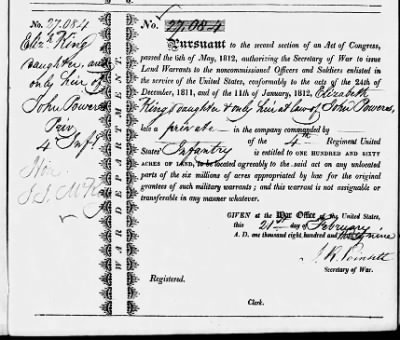 No. 27.084
Eliz.h King
daughter, and
only heir of
John Powers
Priv.
4 Inf.y
Hon.
WAR DEPARTMENT.
No. 27.084
Pursuant to the second section of an Act of Congress,
passed the 6th of May, 1812, authorizing the Secretary of War to issue
Land Warrants to the noncommissioned Officers and Soldiers enlisted in
the service of the United States, conformably to the acts of the 24th of
December, 1811, and of the 11th of January, 1812, Elizabeth
King daughter & only heir at law of John Powers,
late a private in the company commanded by
of the 4th Regiment United
States' Infantry
is entitled to ONE HUNDRED AND SIXTY
ACRES OF LAND, to be located agreeably to the said act on any unlocated
parts of the six millions of acres appropriated by law for the original
grantees of such military warrants; and this warrant is not assignable or
transferable in any manner whatever.
GIVEN at the War Office of the United States,
this 21st day of February
A. D. one thousand eight hundred and thirty nine
J. R. Poinsett
Secretary of War.
Registered.
Clerk.